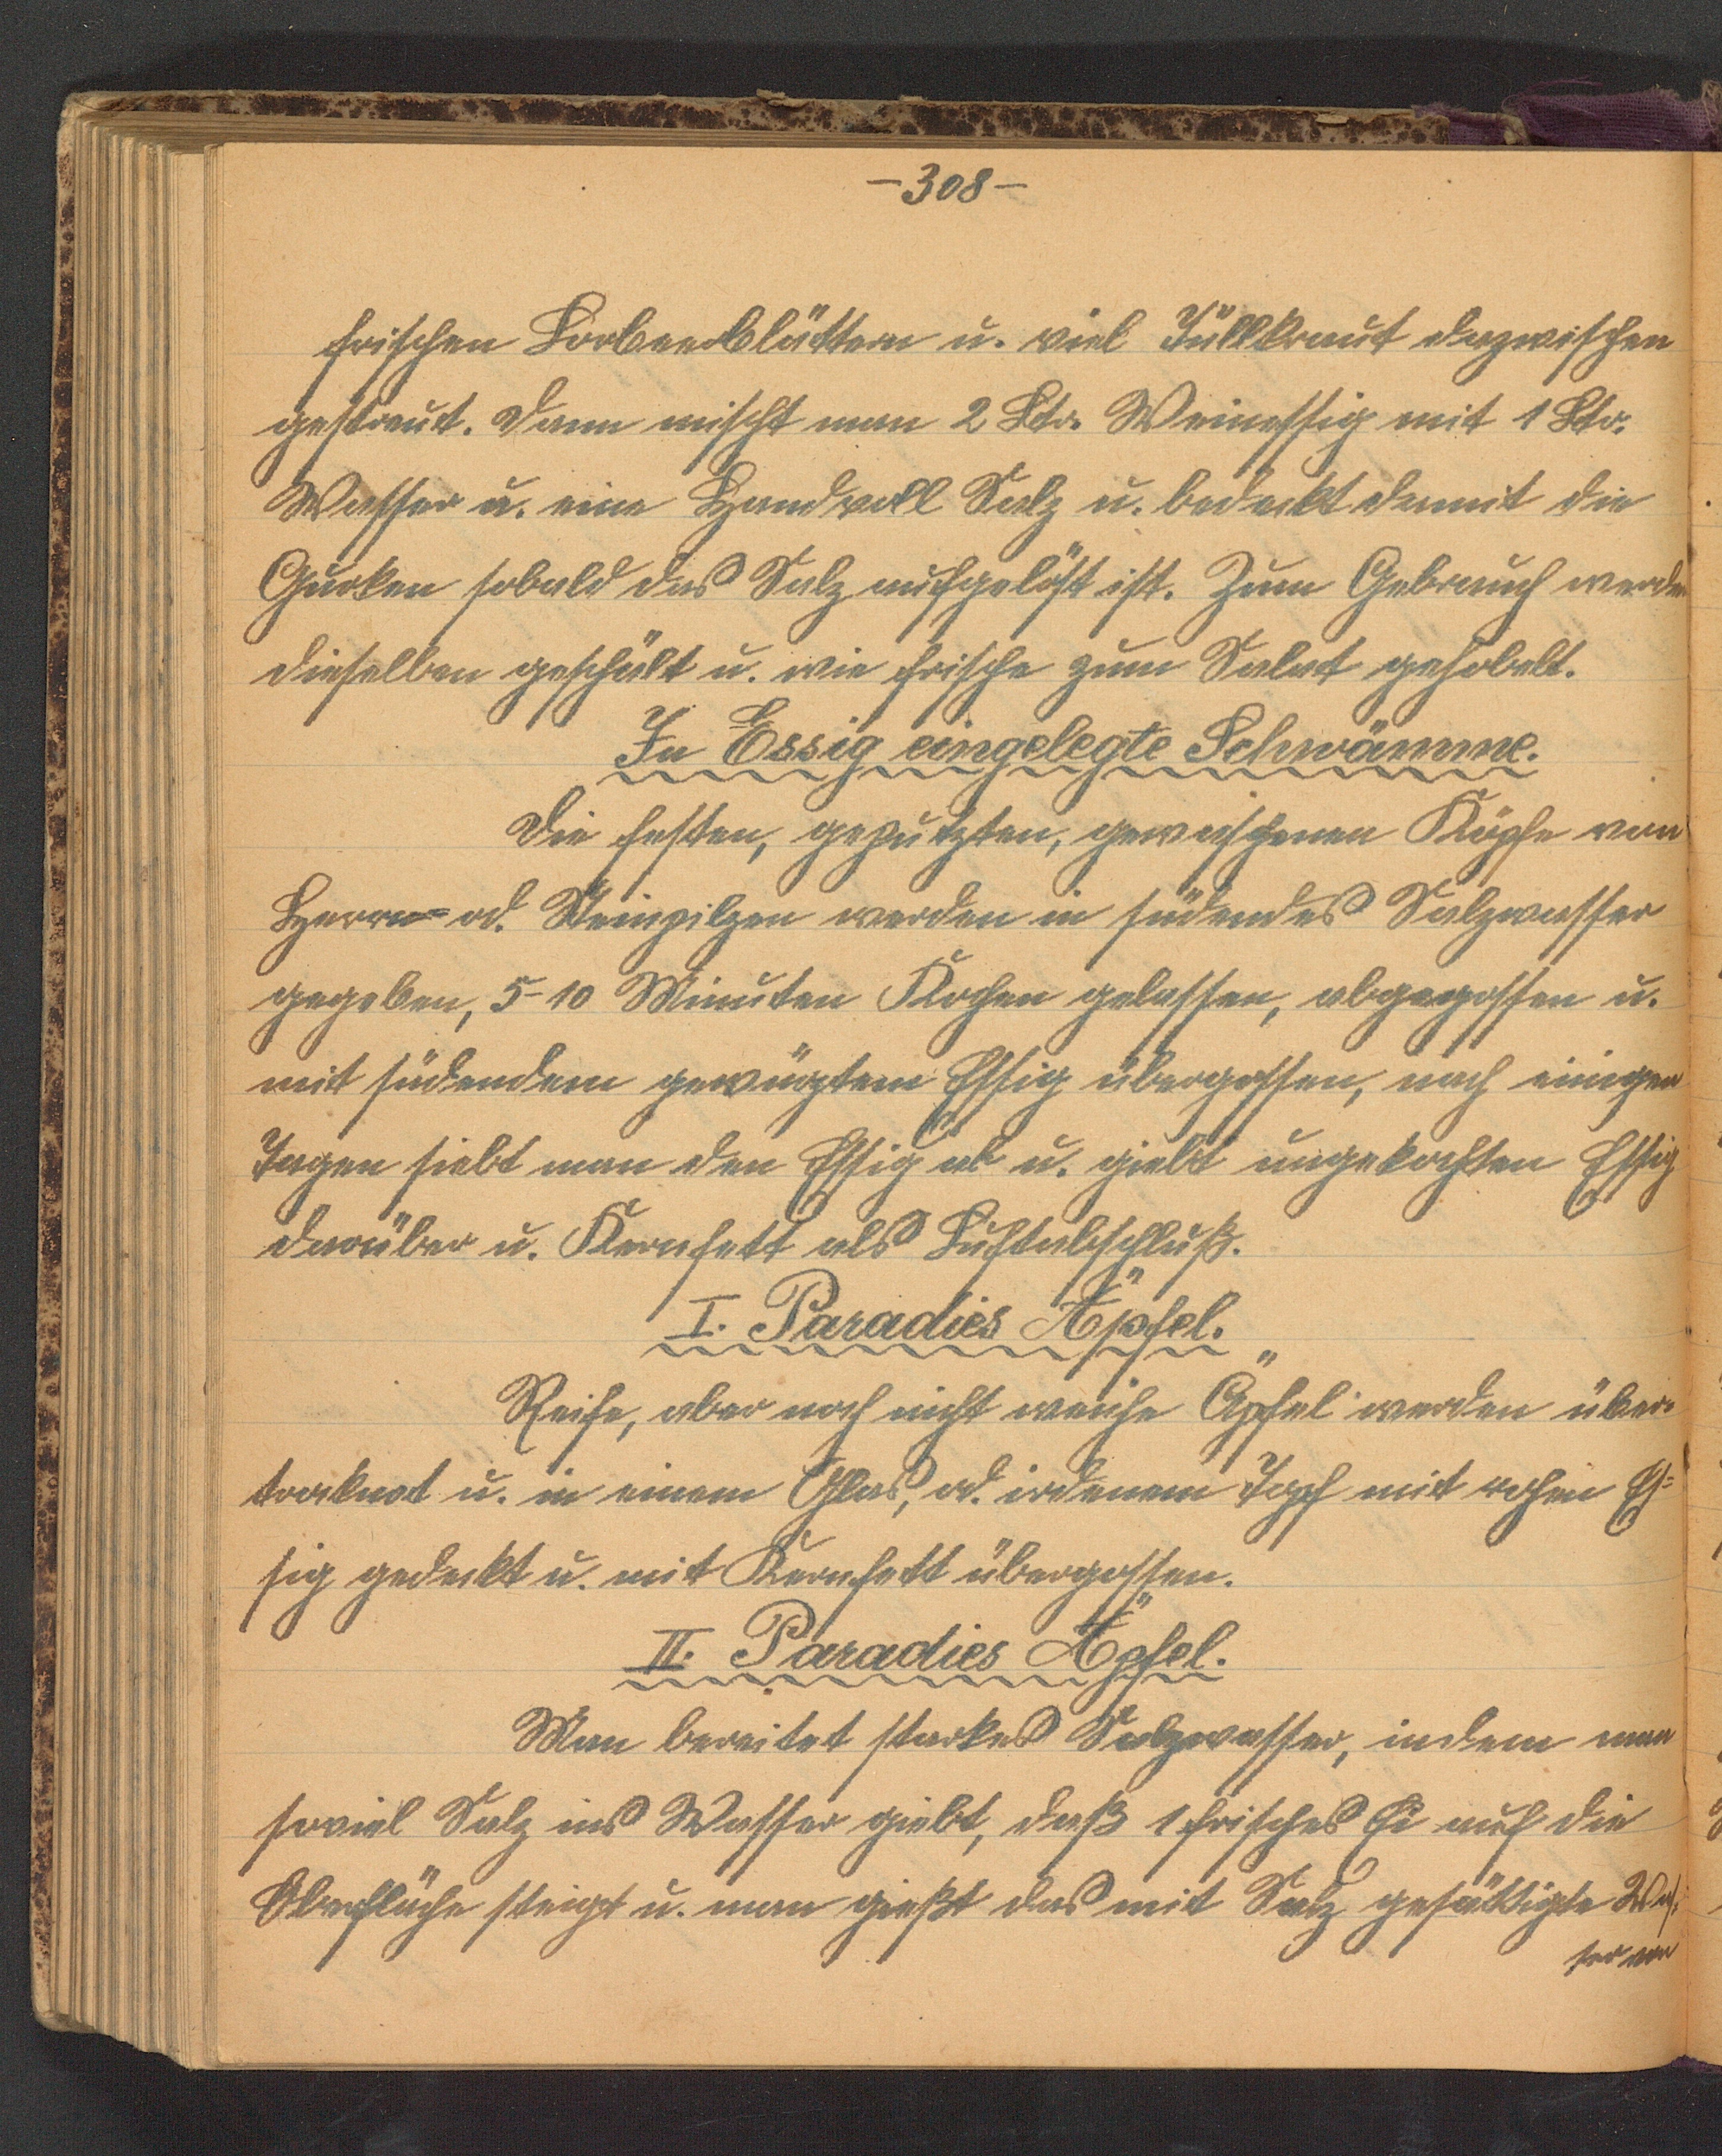 -308-
frischen Lorbeerblättern u. viel Füllkraut dazwischen
gestreut. Dann mischt man 2 Ltr. Weinessig mit 1 Ltr.
Wasser u. eine Handvoll Salz u. bedeckt damit die
Gurken sobald das Salz aufgelöst ist. Zum Gebrauch werden
dieselben geschält u. wie frische zum Salat gehobelt.
In Essig eingelegte Schwämme.
Die festen, geputzten, gewaschenen Köpfe von
Herrn- od. Steinpilzen werden in südendes Salzwasser
gegeben, 5-10 Minuten Kochen gelassen, abgegossen u.
mit südendem gewürztem Essig übergossen, nach einigen
Tagen siebt man den Essig ab u. giebt ungekochten Essig
darüber u. Kernfett als Luftabschluß.
I. Paradies Äpfel.
Reife, aber noch nicht weiche Äpfel werden über-
trocknet u. in einem Glas, od. irdenem Topf mit rohen Es=
sig gedeckt u. mit Kernfett übergossen.
II. Paradies Äpfel.
Man bereitet starkes Salzwasser, indem man
soviel Salz ins Wasser giebt, daß 1 frisches Ei auf die
Oberfläche steigt u. man gießt das mit Salz gesättigte Was=
ser von